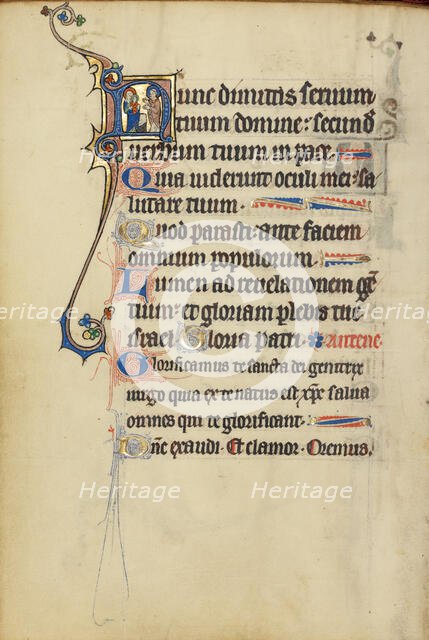 Nunc dimittis seruum
tuum domine: secund
uerbum tuum in pace
Quia uiderunt oculi mei: sa
lutare tuum
Quod parasti: ante faciem
omnium populorum
Lumen ad reuelationem gē
tium: et gloriam plebis tue
israel. Gloria patri. Antene
Glorificamus te sancta dei genitrix
uirgo quia ex te natus est xp̄c salua
omnes qui te glorificant.
Dn̄e exaudi. Et clamor. Oremus.
Heritage
Heritage
Heritage
Heritage
Heritage
Heritage